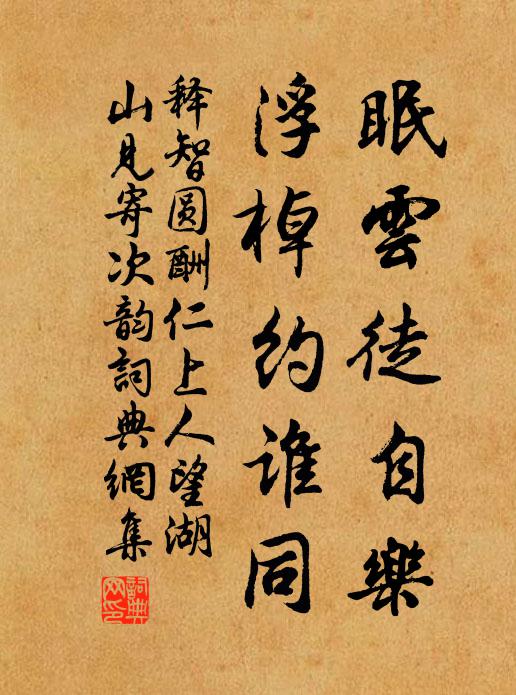 眠雲徒自樂
浮棹約誰同
释智圆酬仁上人望湖
山見寄次韵詞典網集
詞典
网印